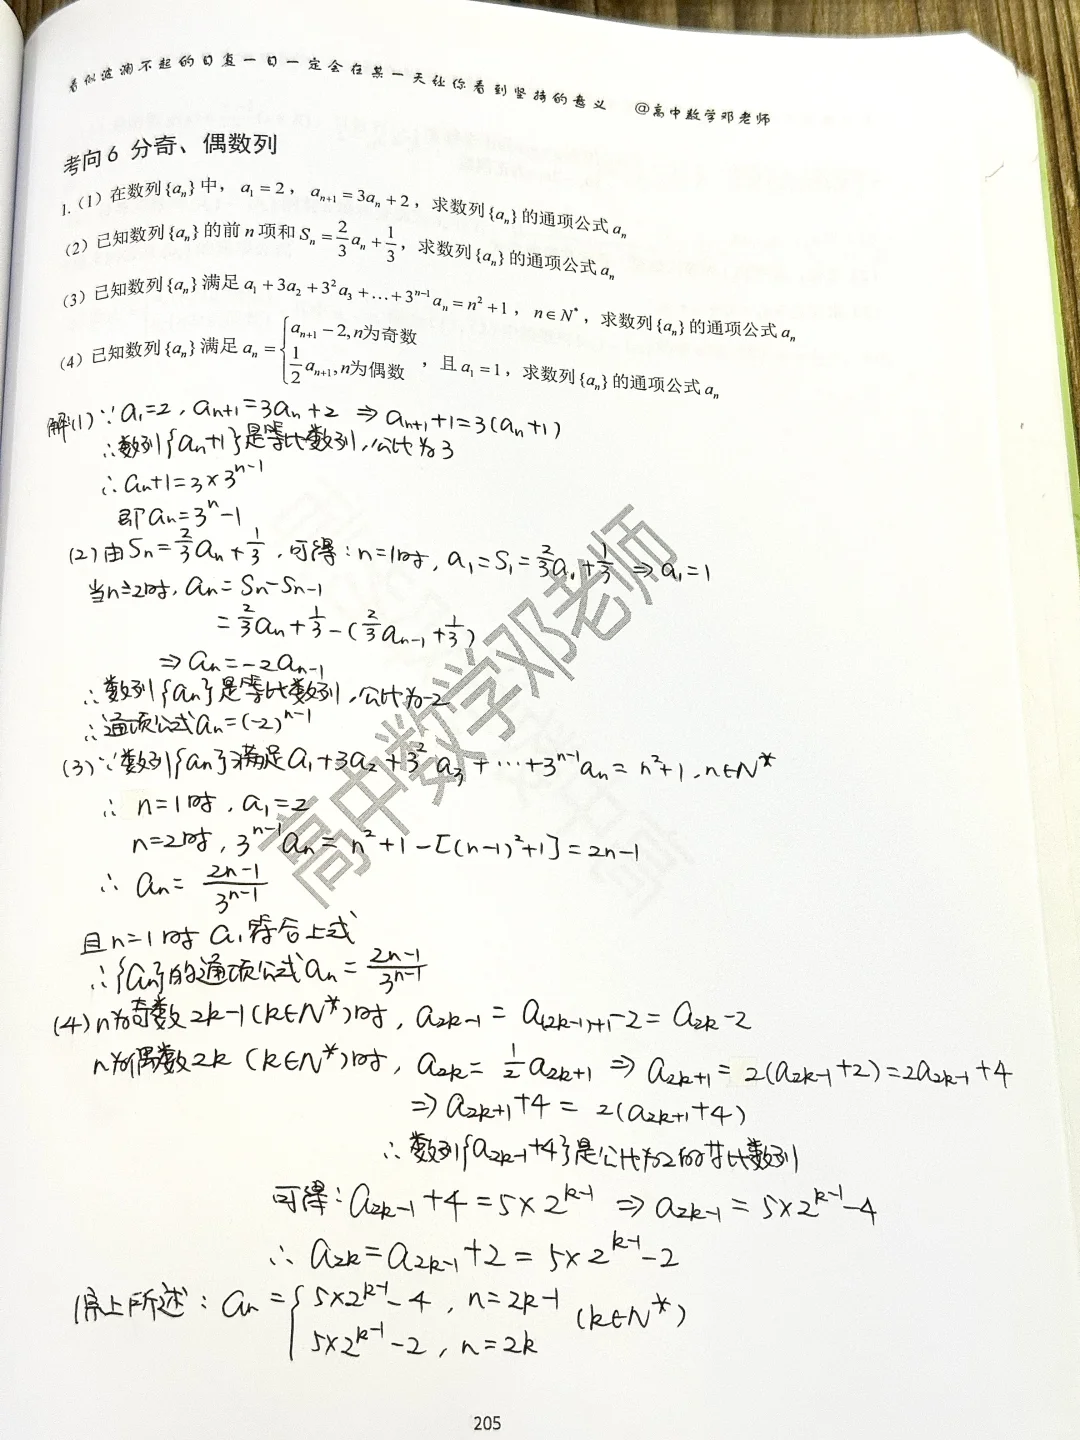 看似波澜不起的日复一日一定会在某一天让你看到坚持的意义 @高中数学邓老师
考向6 分奇、偶数列
1.（1）在数列{aₙ}中，a₁=2，aₙ₊₁=3aₙ+2，求数列{aₙ}的通项公式aₙ
（2）已知数列{aₙ}的前n项和Sₙ=2/3aₙ+1/3，求数列{aₙ}的通项公式aₙ
（3）已知数列{aₙ}满足a₁+3a₂+3²a₃+…+3ⁿ⁻¹aₙ=n²+1，n∈N*，求数列{aₙ}的通项公式aₙ
（4）已知数列{aₙ}满足aₙ={aₙ₊₁-2,n为奇数
1/2aₙ₊₁,n为偶数，且a₁=1，求数列{aₙ}的通项公式aₙ
解(1)∵a₁=2,aₙ₊₁=3aₙ+2⇒aₙ₊₁+1=3(aₙ+1)
∴数列{aₙ+1}是等比数列,公比为3
∴aₙ+1=3×3ⁿ⁻¹
即aₙ=3ⁿ-1
(2)由Sₙ=2/3aₙ+1/3,可得:n=1时,a₁=S₁=2/3a₁+1/3⇒a₁=1
当n≥2时,aₙ=Sₙ-Sₙ₋₁
=2/3aₙ+1/3-(2/3aₙ₋₁+1/3)
⇒aₙ=-2aₙ₋₁
∴数列{aₙ}是等比数列,公比为-2
∴通项公式aₙ=(-2)ⁿ⁻¹
(3)∵数列{aₙ}满足a₁+3a₂+3²a₃+…+3ⁿ⁻¹aₙ=n²+1,n∈N*
∴n=1时,a₁=2
n=2时,3ⁿ⁻¹aₙ=n²+1-[(n-1)²+1]=2n-1
∴aₙ=2n-1/3ⁿ⁻¹
且n=1时a₁符合上式
∴{aₙ}的通项公式aₙ=2n-1/3ⁿ⁻¹
(4)n为奇数2k-1(k∈N*)时,a₂ₖ₋₁=a₍₂ₖ₋₁₎₊₁-2=a₂ₖ-2
n为偶数2k(k∈N*)时,a₂ₖ=1/2a₂ₖ₊₁⇒a₂ₖ₊₁=2(a₂ₖ₋₁+2)=2a₂ₖ₋₁+4
⇒a₂ₖ₊₁+4=2(a₂ₖ₊₁+4)
∴数列{a₂ₖ₋₁+4}是公比为2的等比数列
可得:a₂ₖ₋₁+4=5×2ᵏ⁻¹⇒a₂ₖ₋₁=5×2ᵏ⁻¹-4
∴a₂ₖ=a₂ₖ₋₁+2=5×2ᵏ⁻¹-2
综上所述:aₙ={5×2ᵏ⁻¹-4,n=2k-1
5×2ᵏ⁻¹-2,n=2k (k∈N*)
高中数学邓老师
205